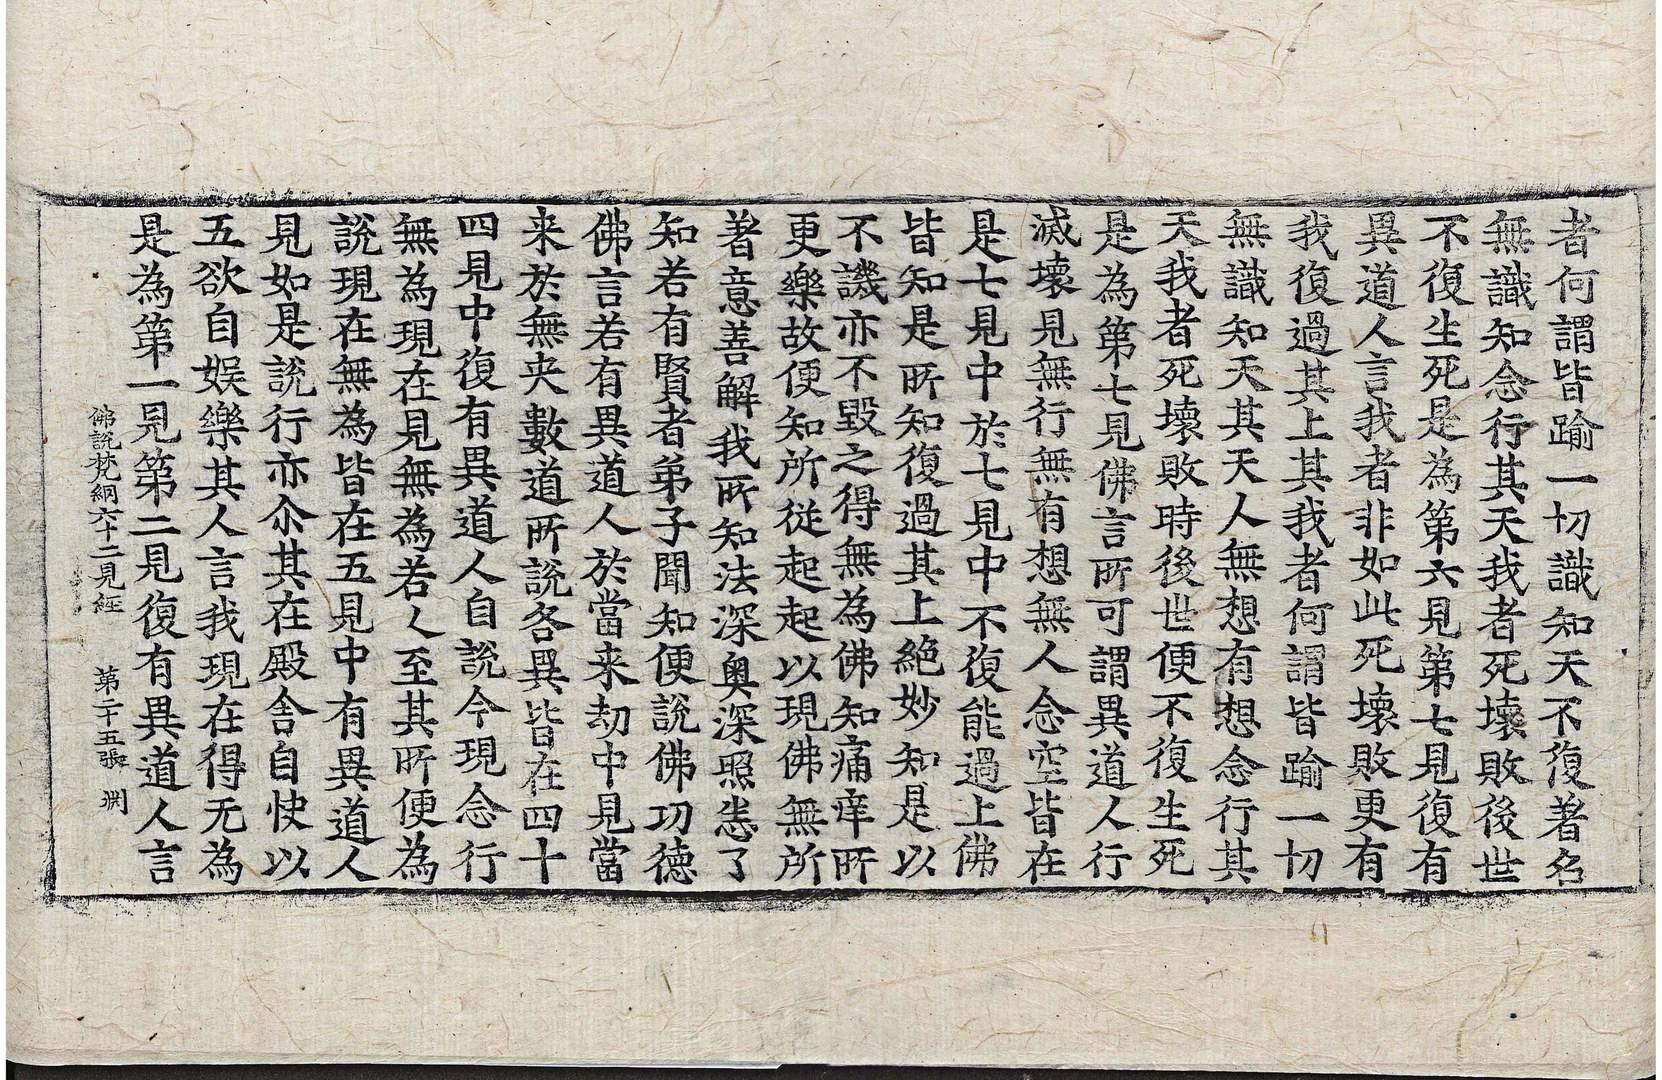 者何謂皆踰一切識知天不復著名
無識知念行其天我者死壞敗後世
不復生死是為第六見第七見復有
異道人言我者非如此死壞敗更有
我復過其上其我者何謂皆踰一切
無識知天其天人無想有想念行其
天我者死壞敗時後世便不復生死
是為第七見佛言所可謂異道人行
滅壞見無行無有想無人念空皆在
是七見中於七見中不復能過上佛
皆知是所知復過其上絕妙知是以
不譏亦不毀之得無為佛知痛痒所
更樂故便知所從起起以現佛無所
著意善解我所知法深奧深照悉了
知若有賢者弟子聞知便說佛功德
佛言若有異道人於當来劫中見當
来於無央數道所說各異皆在四十
四見中復有異道人自說今現念行
無為現在見無為若人至其所便為
說現在無為皆在五見中有異道人
見如是說行亦尒其在殿舍自快以
五欲自娛樂其人言我現在得无為
是為第一見第二見復有異道人言
佛說梵網六十二見經　第二十五張　渕